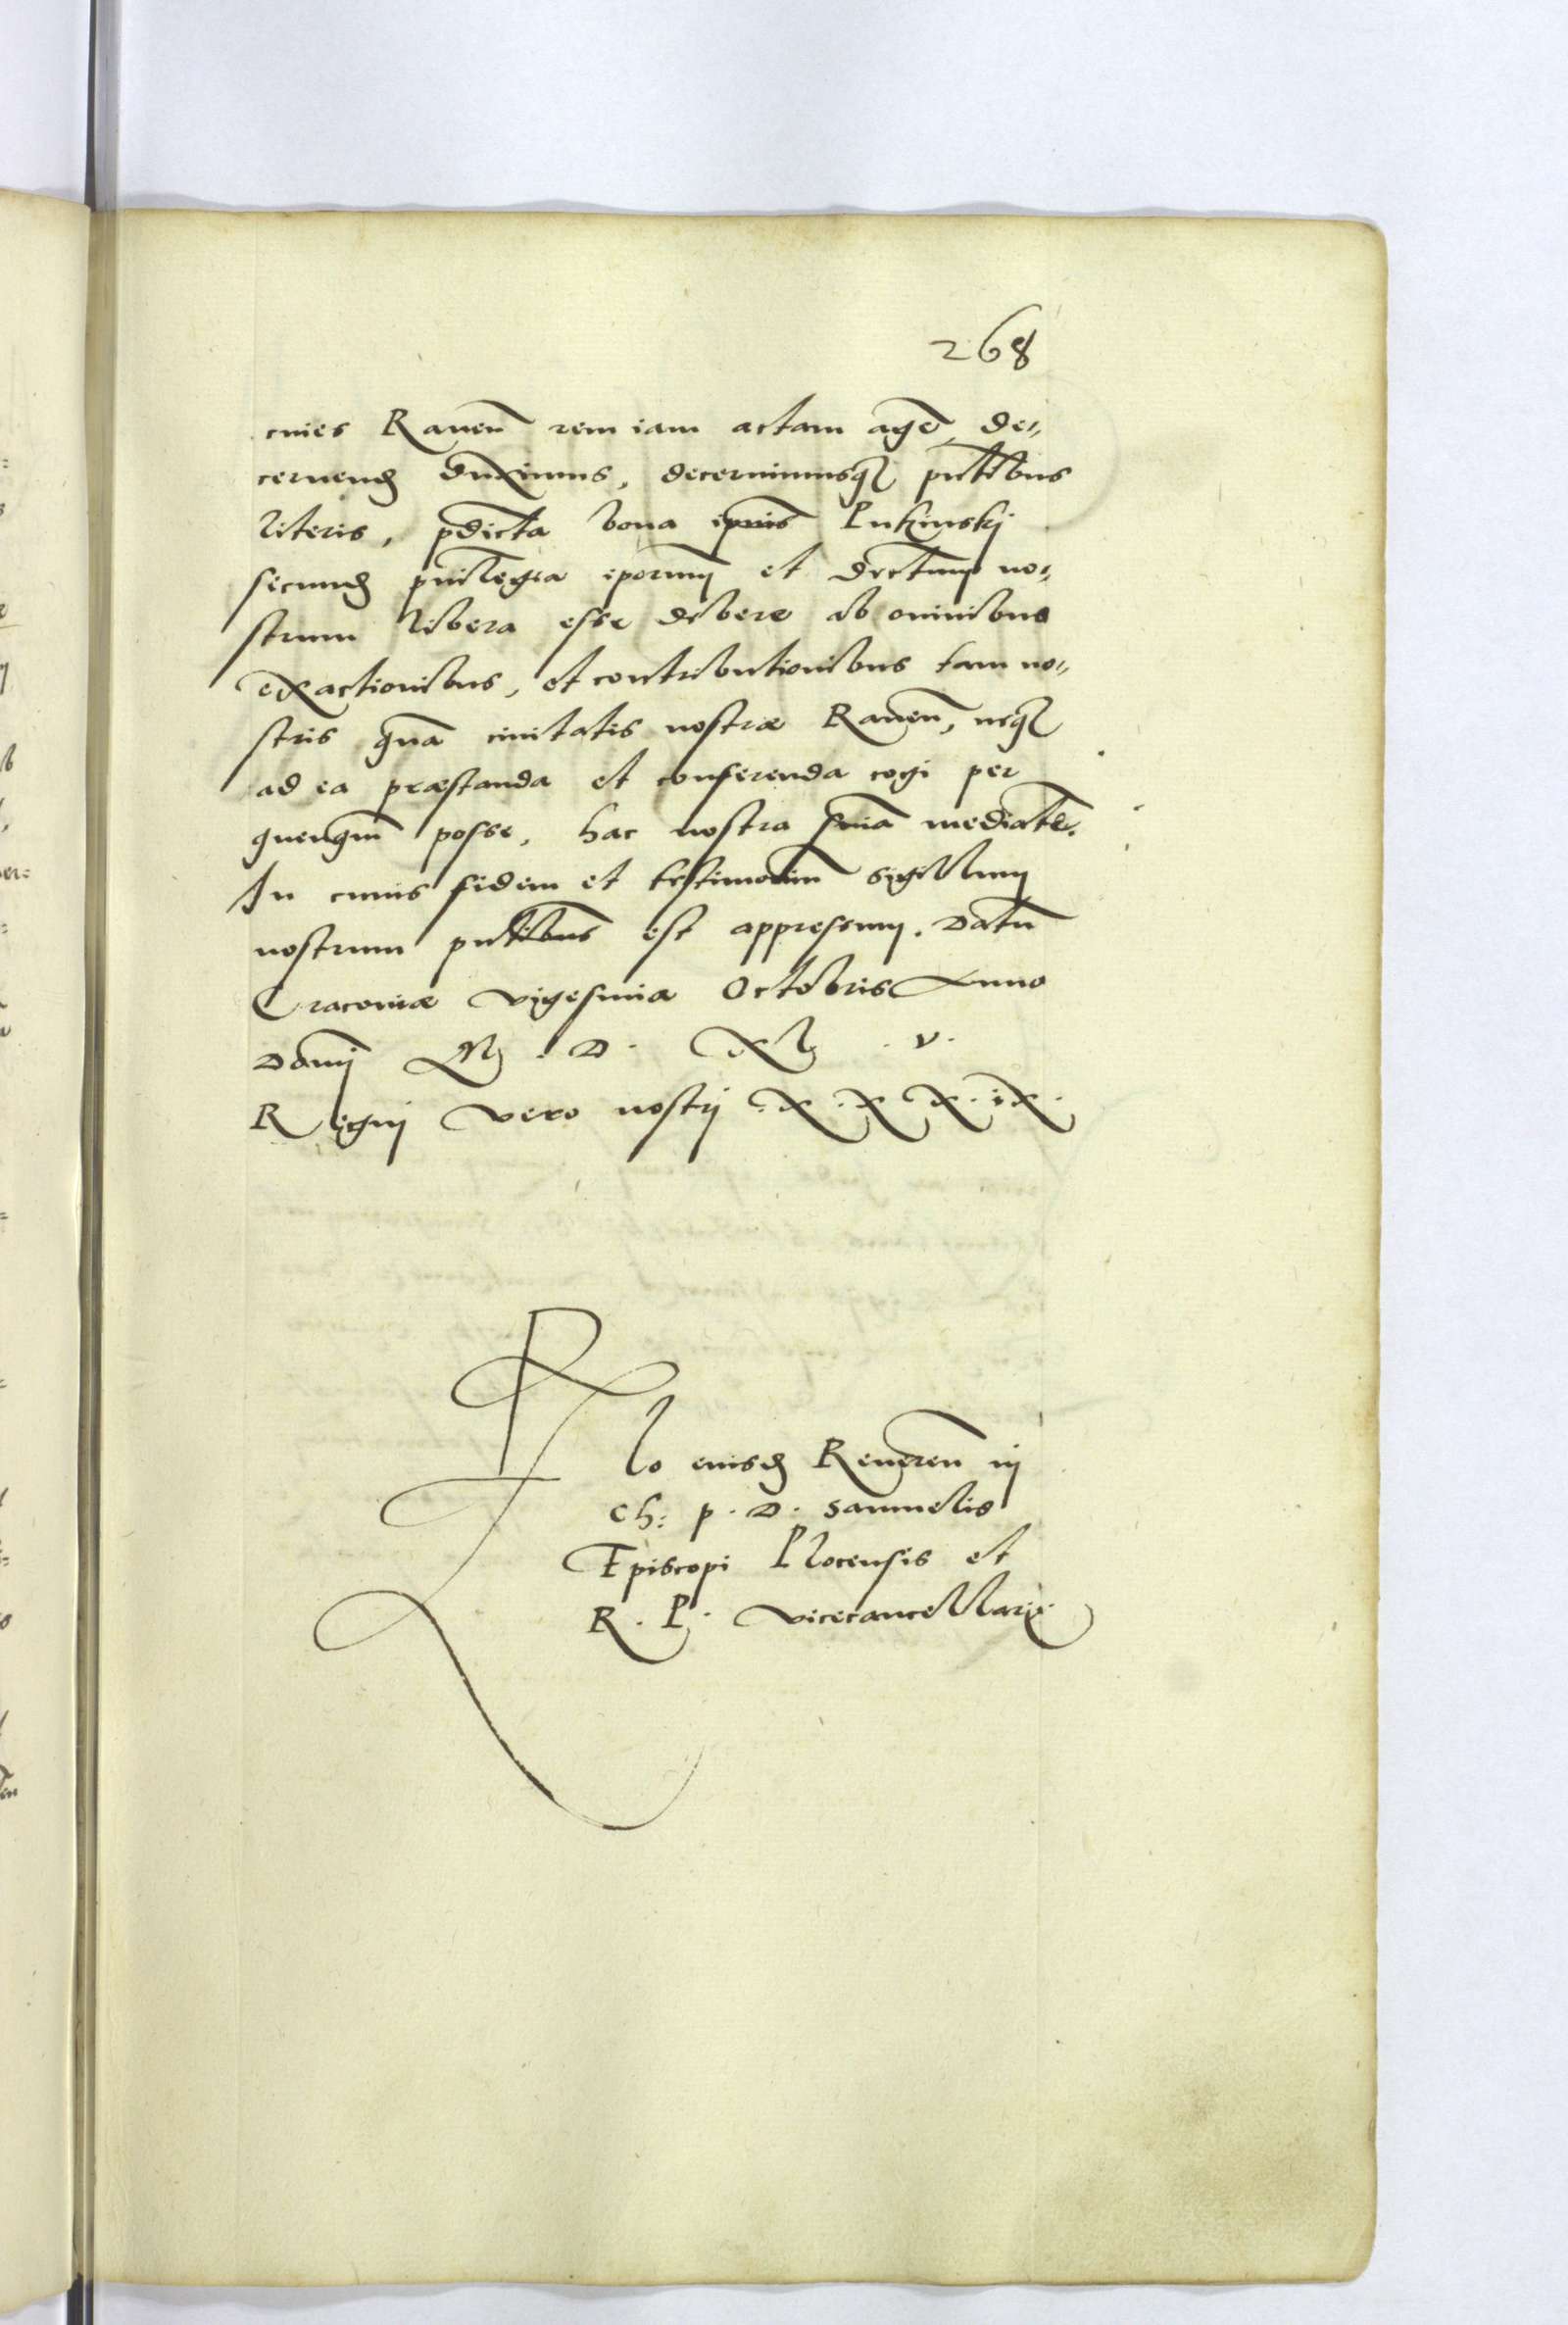 268
cives Raven̄ rem iam actam agē, de-
cernend̨ duximus, decernimusq̨ pn̄tibus
literis, p̄dicta bona ip̄ius Lukinskj
secund̨ privilegia ip̄orum et decretum no-
strum libera esse debere ab omnibus
exactionibus, et contributionibus tam no-
stris quā civitatis nostræ Raven̄, neq̨
ad ea præstanda et conferenda cogi per
quenqm̄ posse, hac nostra sn̄ia mediatē.
In cuius fidem et testimoniū sigillum
nostrum pn̄tibus est appressum. Datū
Cracoviæ vigesima Octobris Anno
Domj M. D. XL. V.
Regnj vero nostrj . X . X X . iX .
R͞lo eiusd̨ Reveren̄ in
Ch: p. D. Samuelis
Episcopi Plocensis et
R. P. vicecancellarij